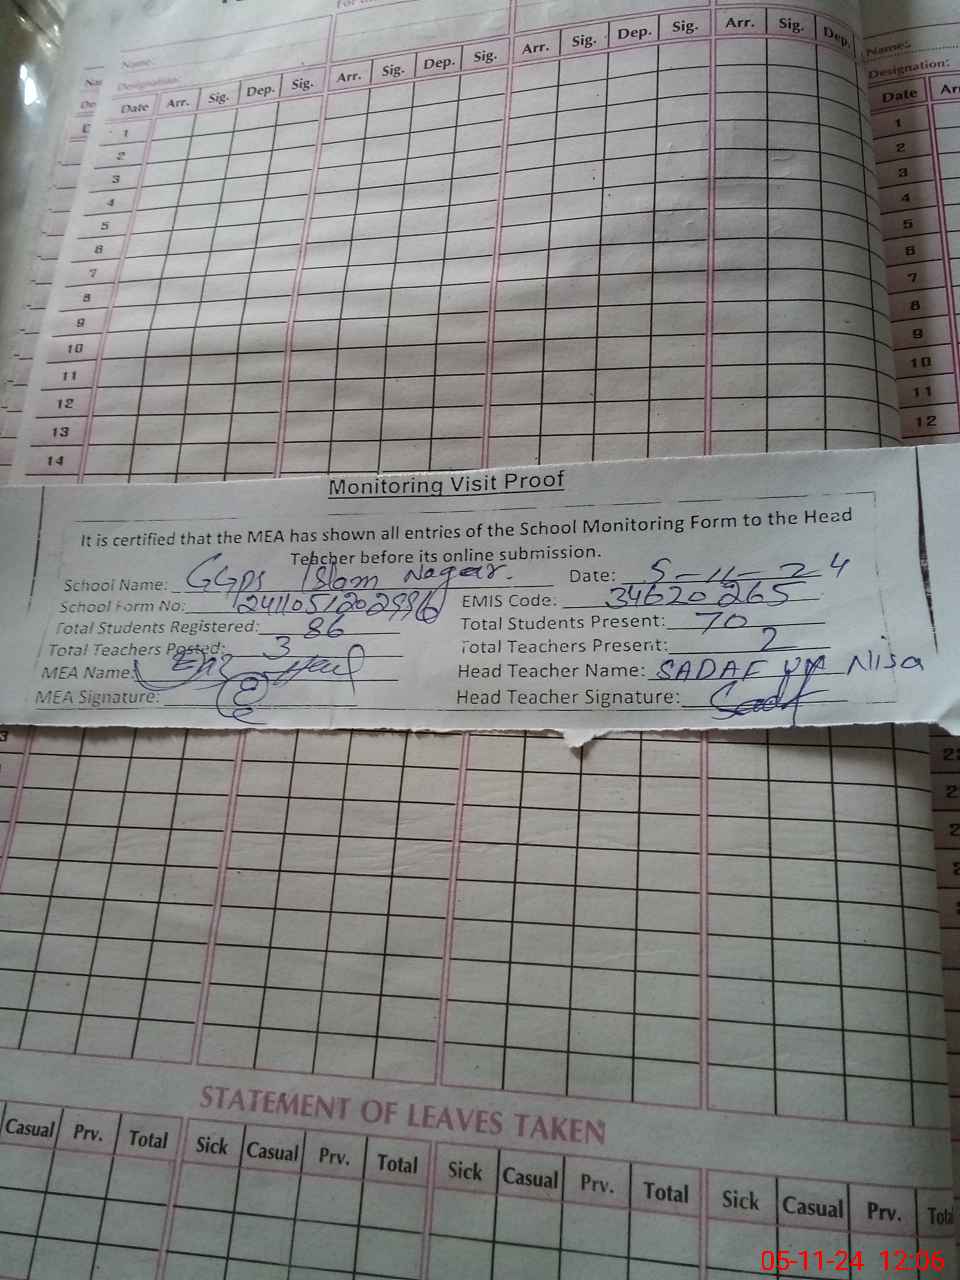 Name:
Designation:
Date Arr. Sig. Dep. Sig. Arr. Sig. Dep. Sig. Arr. Sig. Dep. Sig. Arr. Sig. Dep.
Name:
Designation:
Date
1
2
3
4
5
6
7
8
9
10
11
12
13
14
1
2
3
4
5
6
7
8
9
10
11
12
Monitoring Visit Proof
It is certified that the MEA has shown all entries of the School Monitoring Form to the Head
Teacher before its online submission.
School Name: GGPS Islam Nagar. Date: 5-11-24
School Form No: EMIS Code: 34620265
Total Students Registered: 86 Total Students Present: 70
Total Teachers Posted: 3 Total Teachers Present: 2
MEA Name: Head Teacher Name: SADAF Nisa
MEA Signature: Head Teacher Signature:
STATEMENT OF LEAVES TAKEN
Casual Prv. Total Sick Casual Prv. Total Sick Casual Prv. Total Sick Casual Prv.
05-11-24 12:06